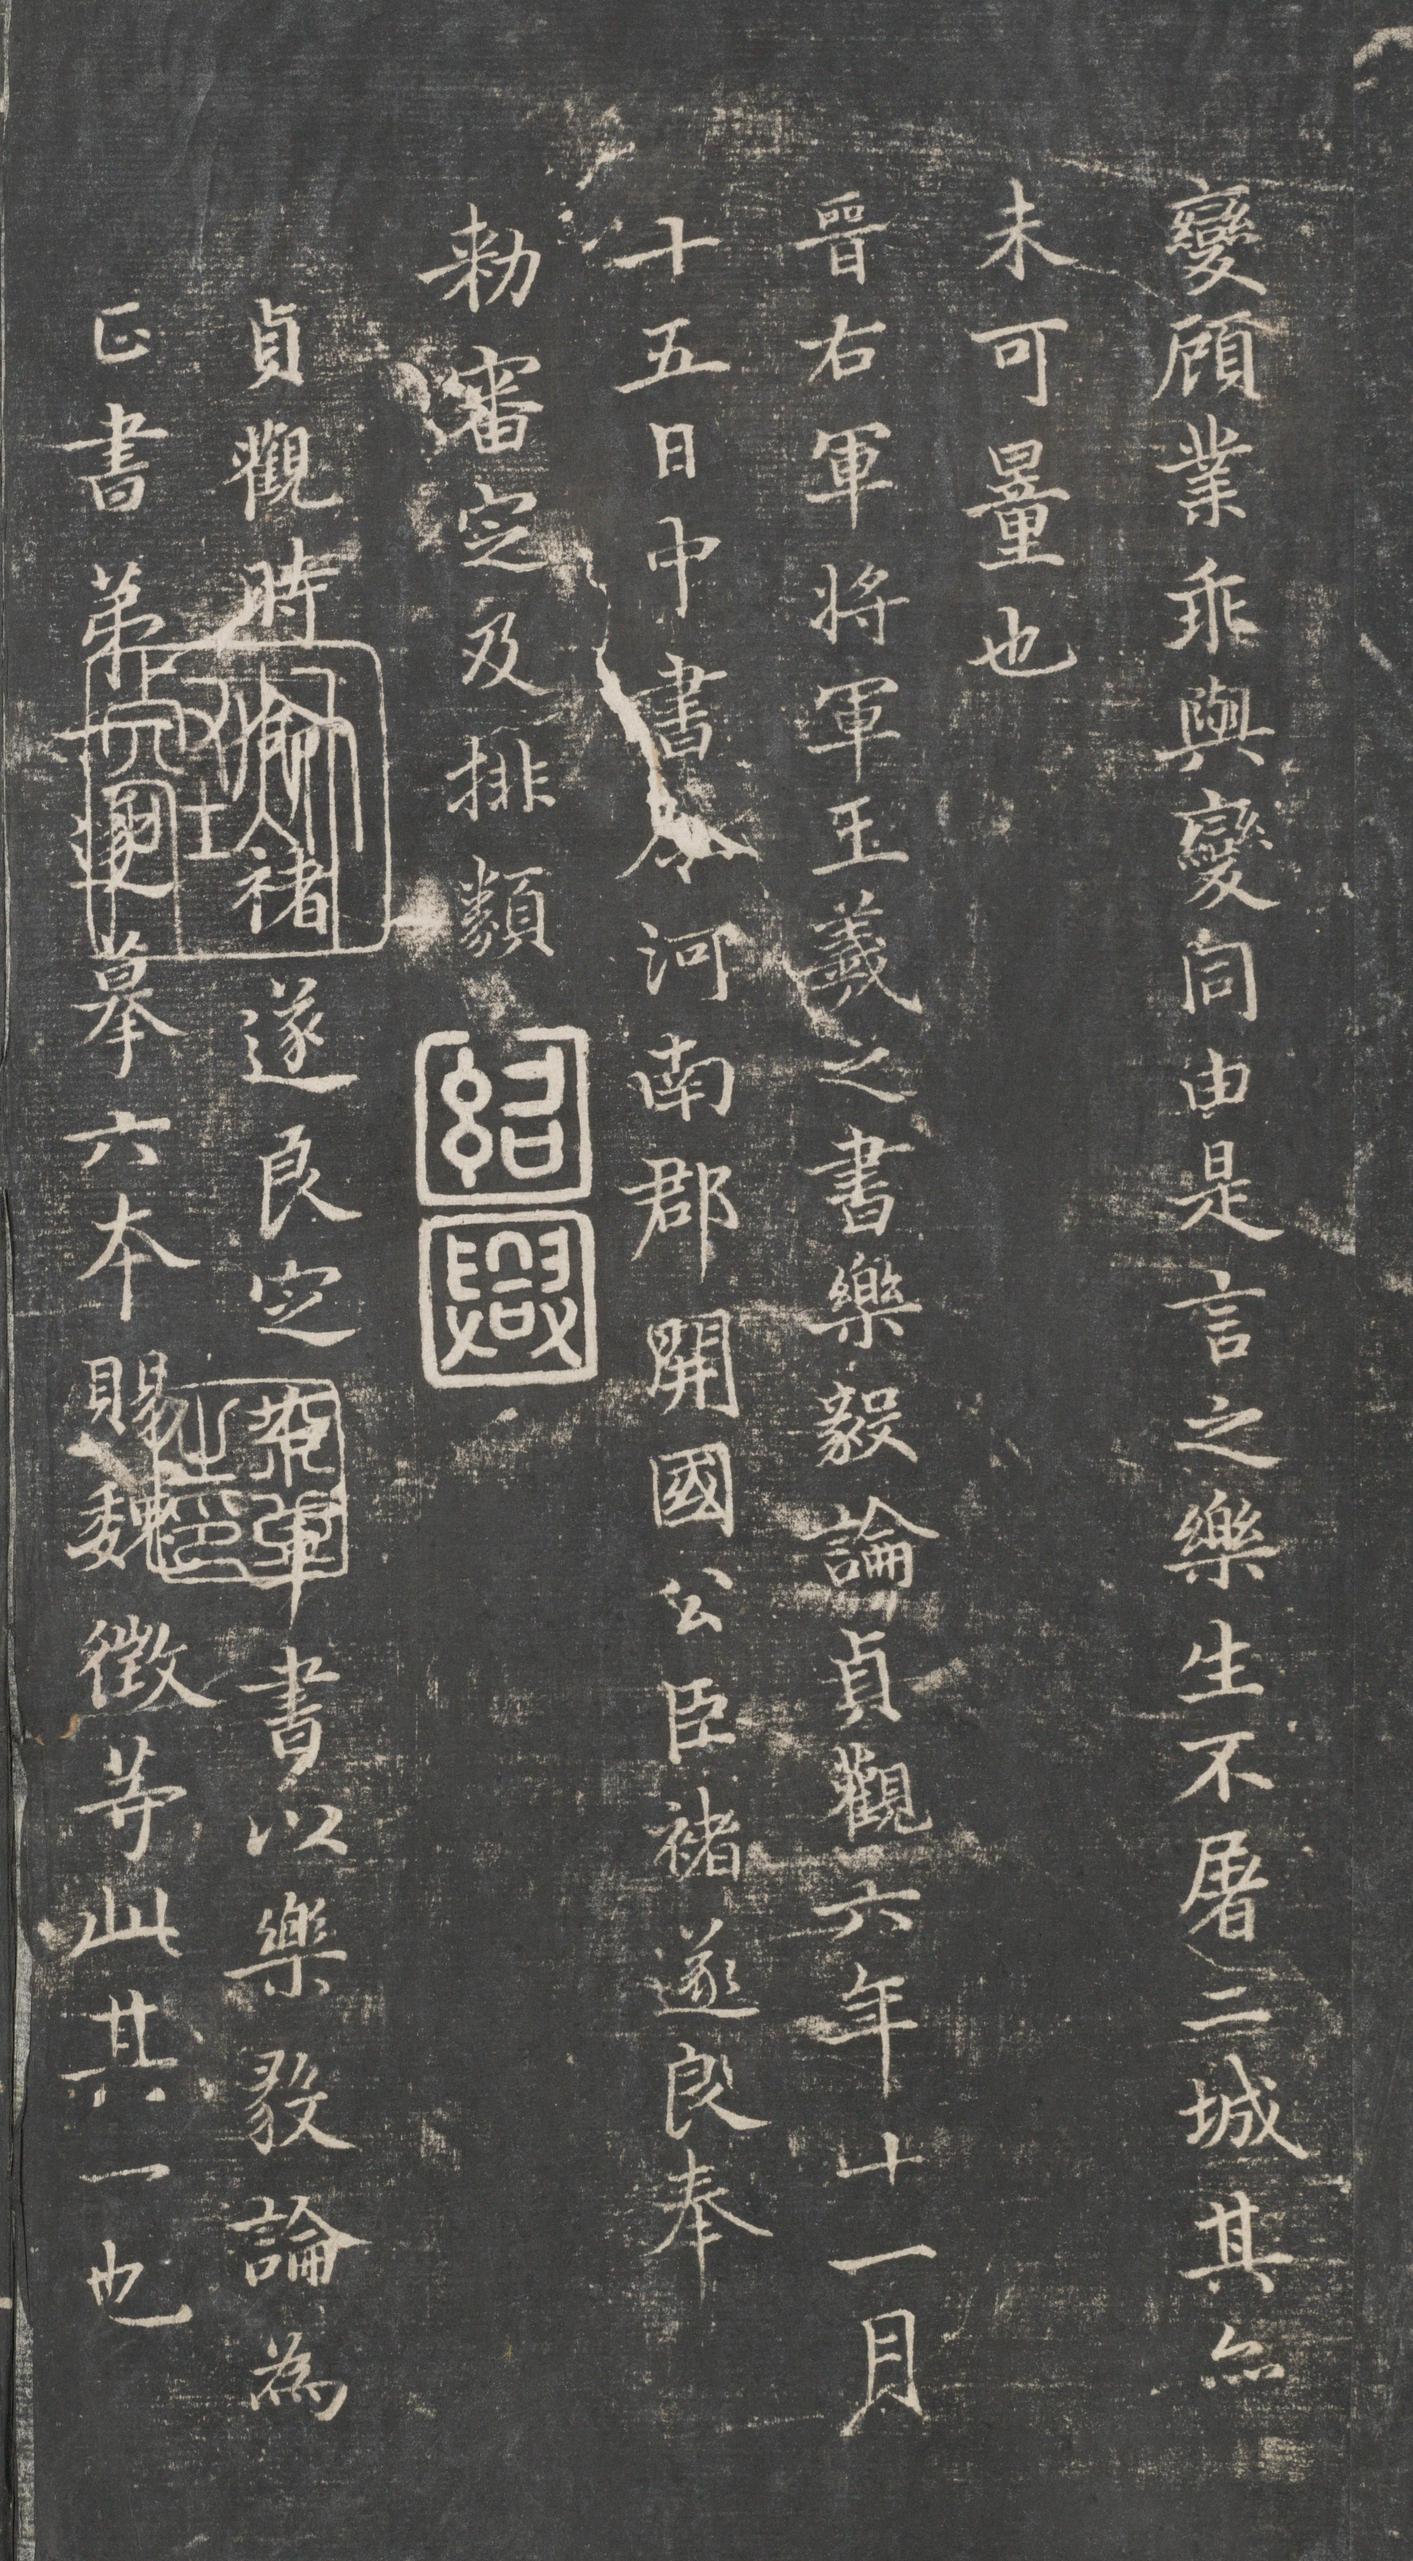 變顧業乖與變同由是言之樂生不屠二城其亦
未可量也
晉右軍將軍王羲之書樂毅論貞觀六年十一月
十五日中書令河南郡開國公臣褚遂良奉
勑審定及排類
紹興
貞觀時褚遂良定右軍書以樂毅論為
正書弟一摹六本賜魏徵等此其一也